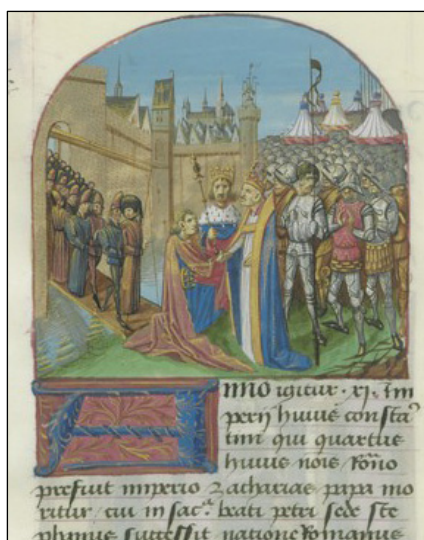 ANNO igitur · xj · Im
perij huius consta͂
tini qui quartus
huius nois Roño
prefuit imperio zacharias papa mo
ritur cui in sac.ᵃ beati petri sede ste
phanus successit natione Romanus